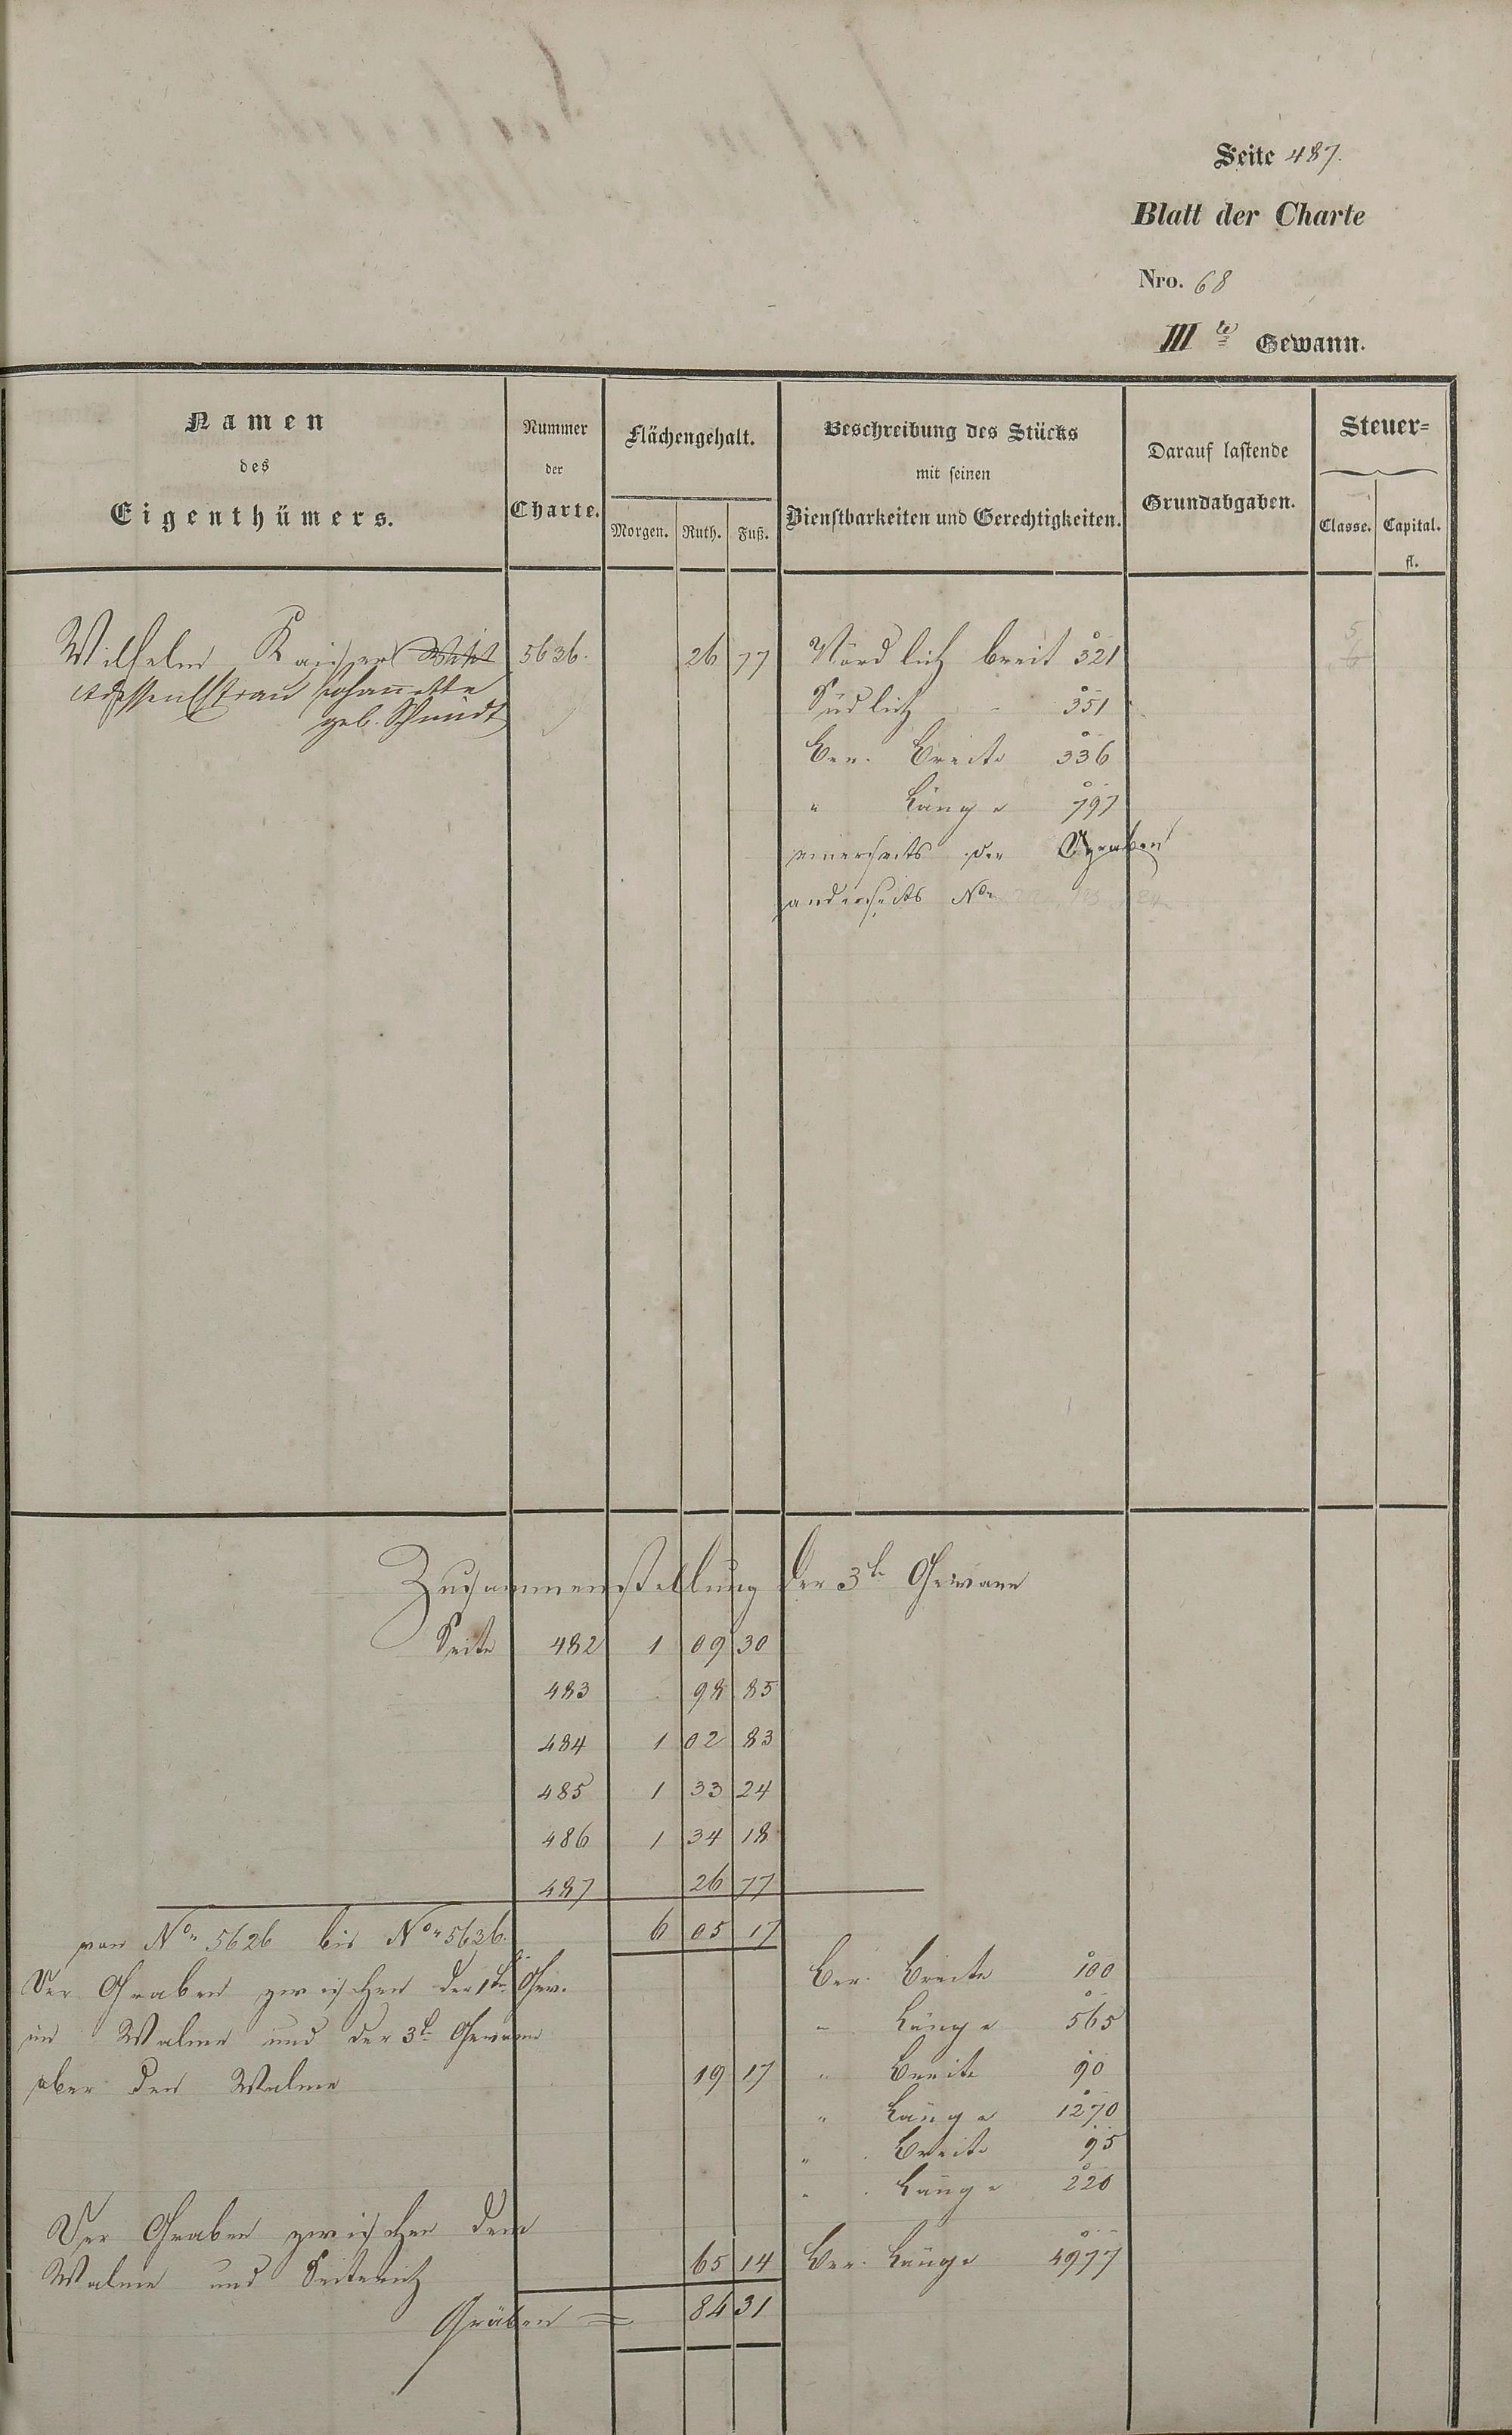 Seite 487.
Blatt der Charte
Nro. 68
III te Gewann.
Namen des Eigenthümers.
Nummer der Charte.
Flächengehalt.
Morgen. Ruth. Fuß.
Beschreibung des Stücks mit seinen Dienstbarkeiten und Gerechtigkeiten.
Darauf lastende Grundabgaben.
Steuer=
Classe. Capital. fl.
Wilhelm Kaiser 5636. 26 77 Nördlich breit 321 5
Ehefrau Johannette Südlich - 351
geb. Schmidt
Ber. Breite 336
" Länge 797
einerseits der Graben
anderseits No
Zusammenstellung der 3te Gewann
Seite 482 1 09 30
483 98 85
484 1 02 83
485 1 33 24
486 1 34 18
487 26 77
von No 5626 bis No 5636. 6 05 17
Der Graben zwischen der 1te Gew. Ber. Breite 100
im Walme und der 3te Gewann " Länge 565
ober den Walme 19 17 " Breite 90
" Länge 1270
" Breite 95
" Länge 220
Der Graben zwischen dem
Walme und 65 14 Ber. Länge 4977
Gräben = 84 31